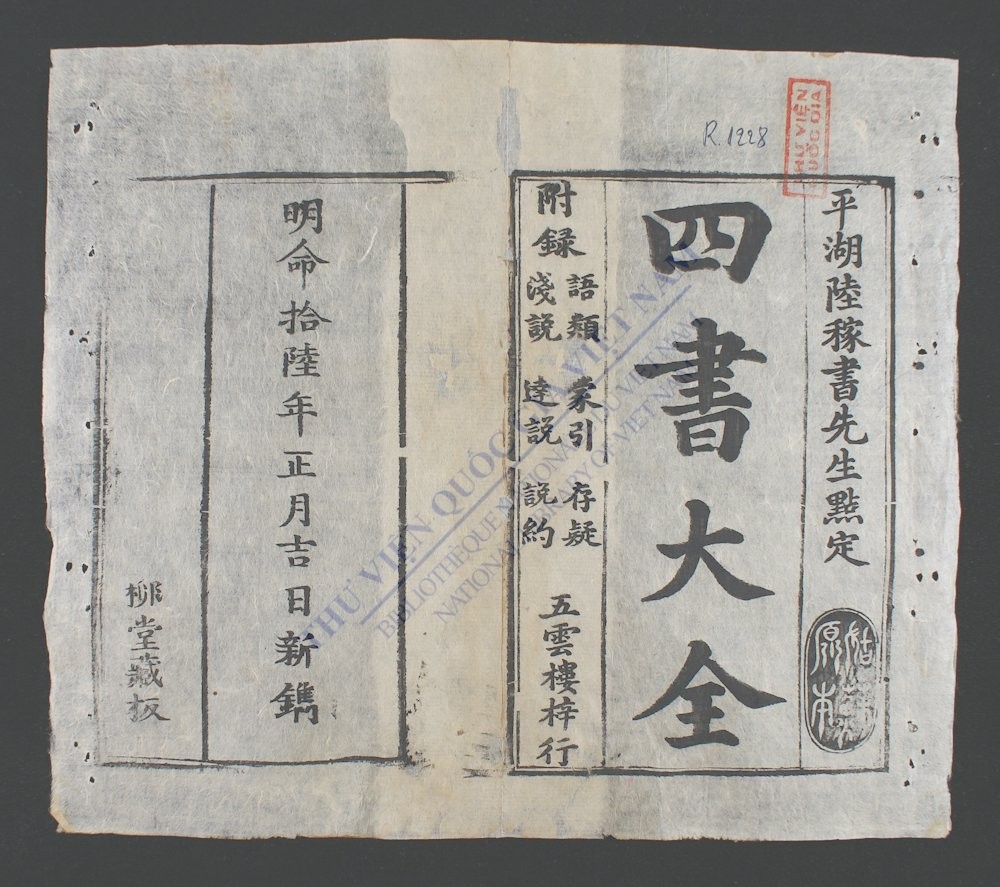 R.1228
平湖陸稼書先生點定
四書大全
附録
語類 蒙引 存疑
淺説 達説 説約
五雲樓梓行
原本
明命拾陸年正月吉日新鐫
柳堂藏板
THƯ VIỆN QUỐC GIA VIỆT NAM
BIBLIOTHEQUE NATIONALE DU VIETNAM
NATIONAL LIBRARY OF VIETNAM